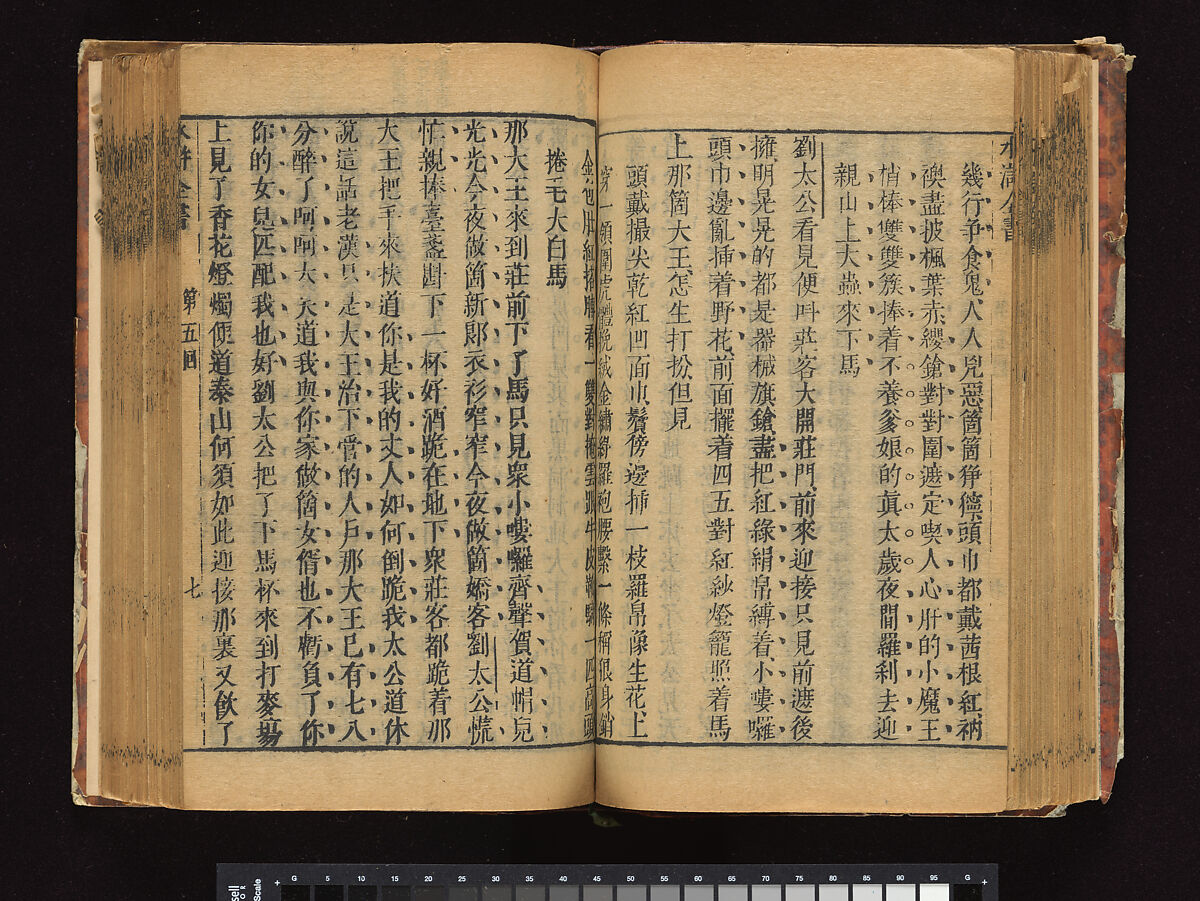 水滸全書
幾行爭食鬼人人兇惡箇箇猙獰頭巾都戴茜根紅衲
襖盡披楓葉赤纓鎗對對圍遮定喫人心肝的小魔王
梢棒雙雙簇捧着不養爹娘的真太歲夜間羅刹去迎
親山上大蟲來下馬
劉太公看見便呌莊客大開莊門前來迎接只見前遮後
擁明晃晃的都是器械旗鎗盡把紅綠絹帛縛着小嘍囉
頭巾邊亂挿着野花前面擺着四五對紅紗燈籠照着馬
上那箇大王怎生打扮但見
頭戴撮尖乾紅凹面巾鬢傍邊挿一枝羅帛像生花上
穿一領圍虎體挽絨金繡綠羅袍腰繫一條稱狼身銷
金包肚紅搭膊着一雙對掩雲跟牛皮靴騎一匹高頭
捲毛大白馬
那大王來到莊前下了馬只見衆小嘍囉齊聲賀道帽兒
光光今夜做箇新郞衣衫窄窄今夜做箇嬌客劉太公慌
忙親捧臺盞斟下一杯好酒跪在地下衆莊客都跪着那
大王把手來扶道你是我的丈人如何倒跪我太公道休
說這話老漢只是大王治下管的人戶那大王已有七八
分醉了呵呵大笑道我與你家做箇女壻也不虧負了你
你的女兒匹配我也好劉太公把了下馬杯來到打麥場
上見了香花燈燭便道泰山何須如此迎接那裏又飲了
水滸全書
第五回
七
G 5 10 15 20 25 30 35 40 45 50 55 60 65 70 75 80 85 90 95 G
Scale